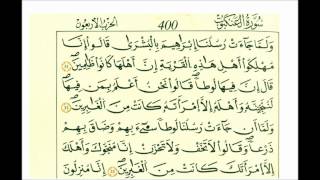 سُورَةُ الْعَنكَبُوت 400 الحزب الأربعون
وَلَمَّا جَآءَتْ رُسُلُنَآ إِبْرَاهِيمَ بِالْبُشْرَىٰ قَالُوٓا۟ إِنَّا
مُهْلِكُوٓا۟ أَهْلِ هَٰذِهِ الْقَرْيَةِ إِنَّ أَهْلَهَا كَانُوا۟ ظَٰلِمِينَ
قَالَ إِنَّ فِيهَا لُوطاً قَالُوا۟ نَحْنُ أَعْلَمُ بِمَن فِيهَا
لَنُنَجِّيَنَّهُۥ وَأَهْلَهُۥٓ إِلَّا امْرَأَتَهُۥ كَانَتْ مِنَ الْغَٰبِرِينَ
وَلَمَّآ أَن جَآءَتْ رُسُلُنَا لُوطاً سِيٓءَ بِهِمْ وَضَاقَ بِهِمْ
ذَرْعاً وَقَالُوا۟ لَا تَخَفْ وَلَا تَحْزَنْ إِنَّا مُنَجُّوكَ وَأَهْلَكَ
إِلَّا امْرَأَتَكَ كَانَتْ مِنَ الْغَٰبِرِينَ إِنَّا مُنزِلُونَ